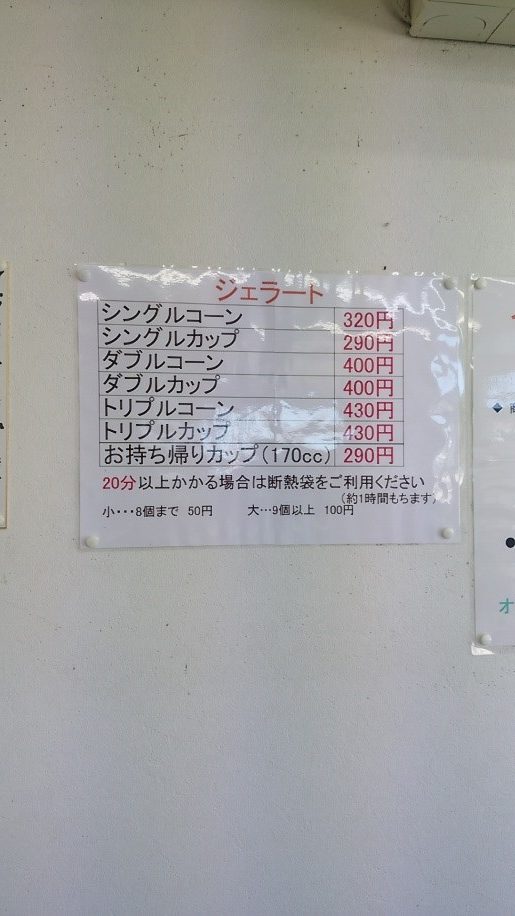 ジェラート
シングルコーン 320円
シングルカップ 290円
ダブルコーン 400円
ダブルカップ 400円
トリプルコーン 430円
トリプルカップ 430円
お持ち帰りカップ(170cc) 290円
20分以上かかる場合は断熱袋をご利用ください
(約1時間もちます)
小・・・8個まで 50円 大…9個以上 100円
オ